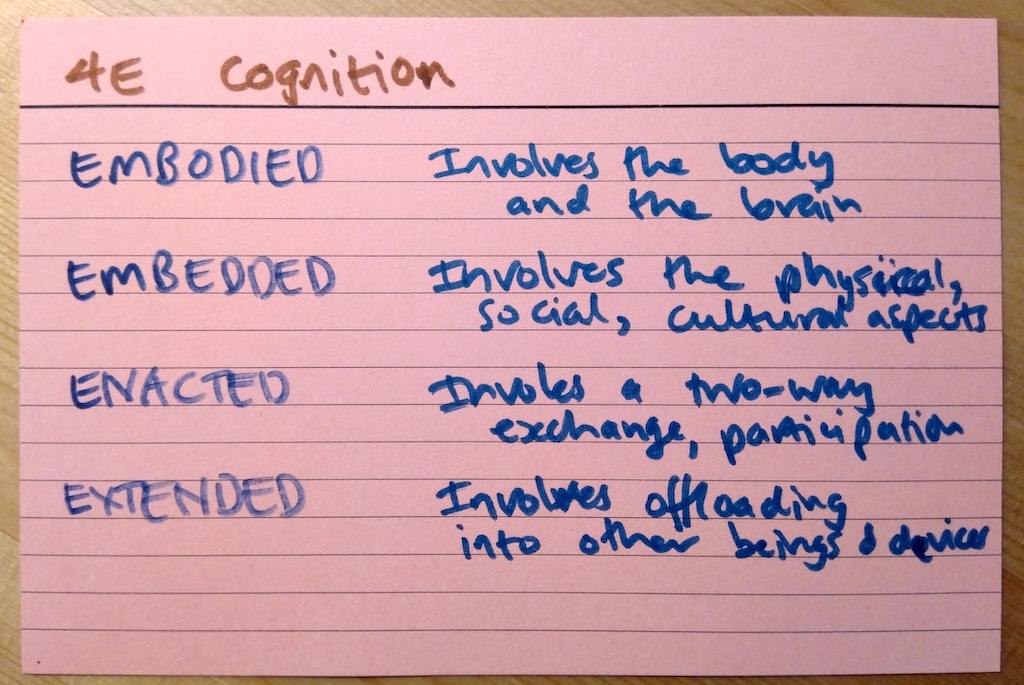 4E Cognition
EMBODIED Involves the body
and the brain
EMBEDDED Involves the physical,
social, cultural aspects
ENACTED Involes a two-way
exchange, participation
EXTENDED Involves offloading
into other beings & devices